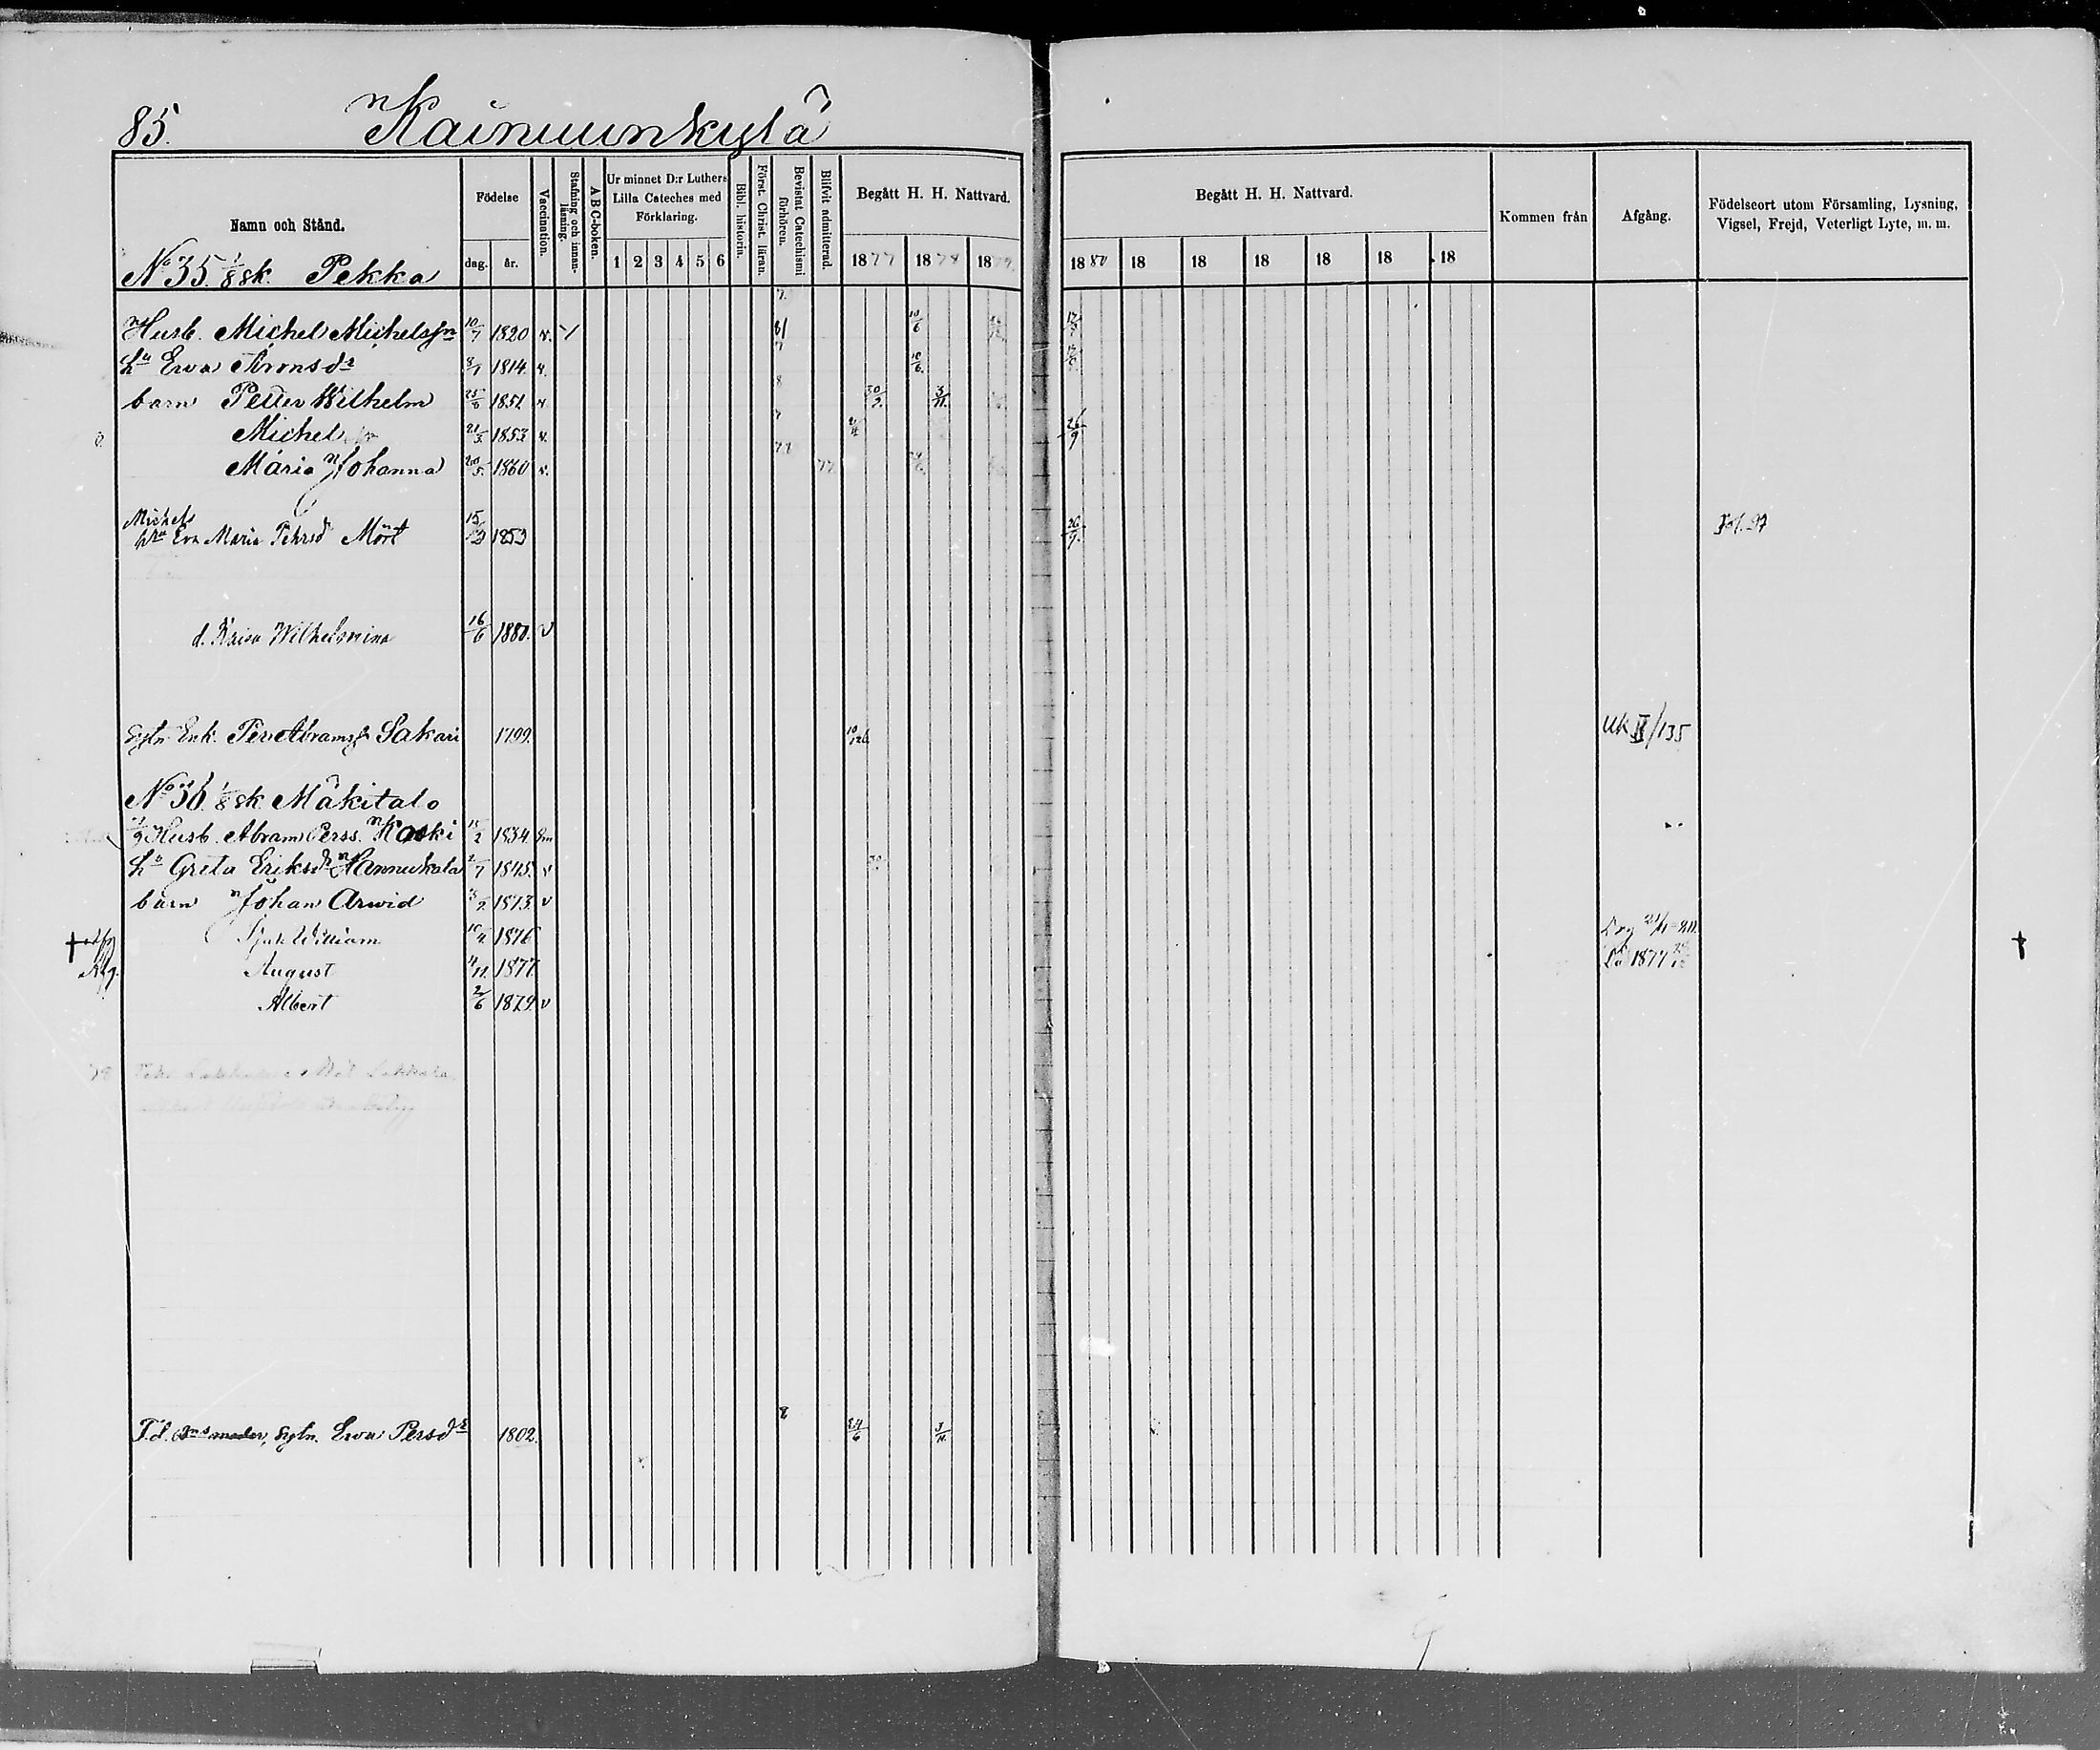 85. Kainuunkylä
Namn och Stånd.
Födelse
dag. år.
Vaccination.
Stafning och innanläsning.
A B C-boken.
Ur minnet D:r Luthers Lilla Cateches med Förklaring.
1 2 3 4 5 6
Bibl. historia.
Först. Christ. läran.
Bevistat Catechismi förhören.
Blifvit admitterad.
Begått H. H. Nattvard.
1877 1878 1879
Begått H. H. Nattvard.
1880 18 18 18 18 18 18
Kommen från
Afgång.
Födelseort utom Församling, Lysning, Vigsel, Frejd, Veterligt Lyte, m. m.
No 35. 1/8 sk. Pekka
Husb. Michel Michelsson 10/7 1820 v. 10/6
hu Ewa Aronsdr 8/7 1814 v. 10/6
barn Petter Wilhelm 25/6 1851 v. 8 30/9 3/11
Michel 21/5 1853 v. 7 26/9
Maria Johanna 20/5 1860 v. 77 77
Michels
hru Eva Maria Pehrsd Mört 15/12 1853 26/9 97
d. Kaisa Wilhelmina 16/6 1880. v
Sytn. Enk. Per Abramss Sakari 1799. UK II/135
No 36. 1/8 sk Mäkitalo
Husb. Abram Perss. Koski 2 1834
hu Greta Eriksdr Hannukala 7 1845. v
barn Johan Arwid 3/2 1873. v
William 1876
August 4/11 1877. 1877
Albert 2/6 1879. v
F.d. moder, Sytn. Ewa Persdr 1802. 8 24/6 3/11